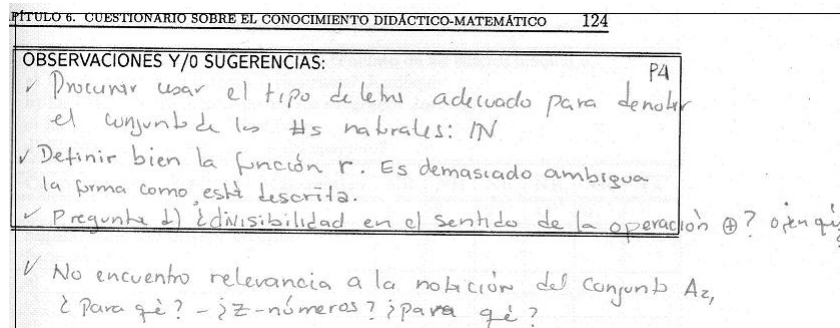 PÍTULO 6. CUESTIONARIO SOBRE EL CONOCIMIENTO DIDÁCTICO-MATEMÁTICO 124
OBSERVACIONES Y/O SUGERENCIAS:
P4
✓ Procurar usar el tipo de letra adecuado para denotar
el conjunto de los #s naturales: IN
✓ Definir bien la función r. Es demasiado ambigua
la forma como está descrita.
✓ Pregunta d) ¿divisibilidad en el sentido de la operación ⊕? o ¿en qué
✓ No encuentro relevancia a la notación del conjunto Az,
¿Para qé? - ¿z-números? ¿para qé?